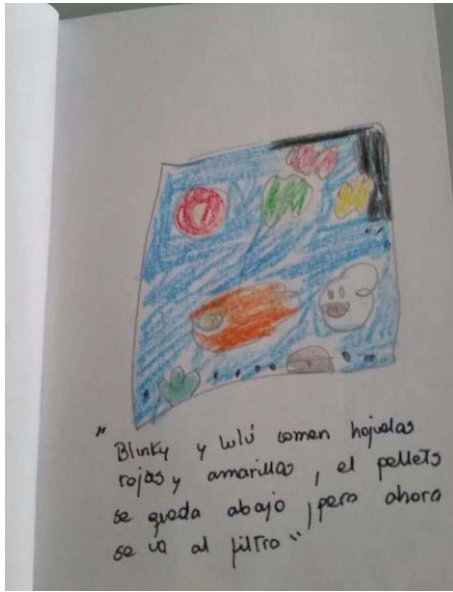 "Blinky y lulú comen hojuelas
rojas y amarillas, el pellets
se queda abajo, pero ahora
se va al filtro"